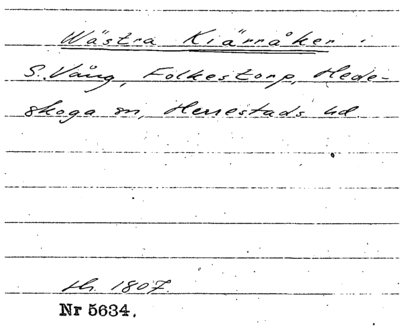 Wästra Kiärråker.
S. Vång, Folkestorp, Hede-
skoga sn, Herrestads hd
th. 1807
Nr 5634.